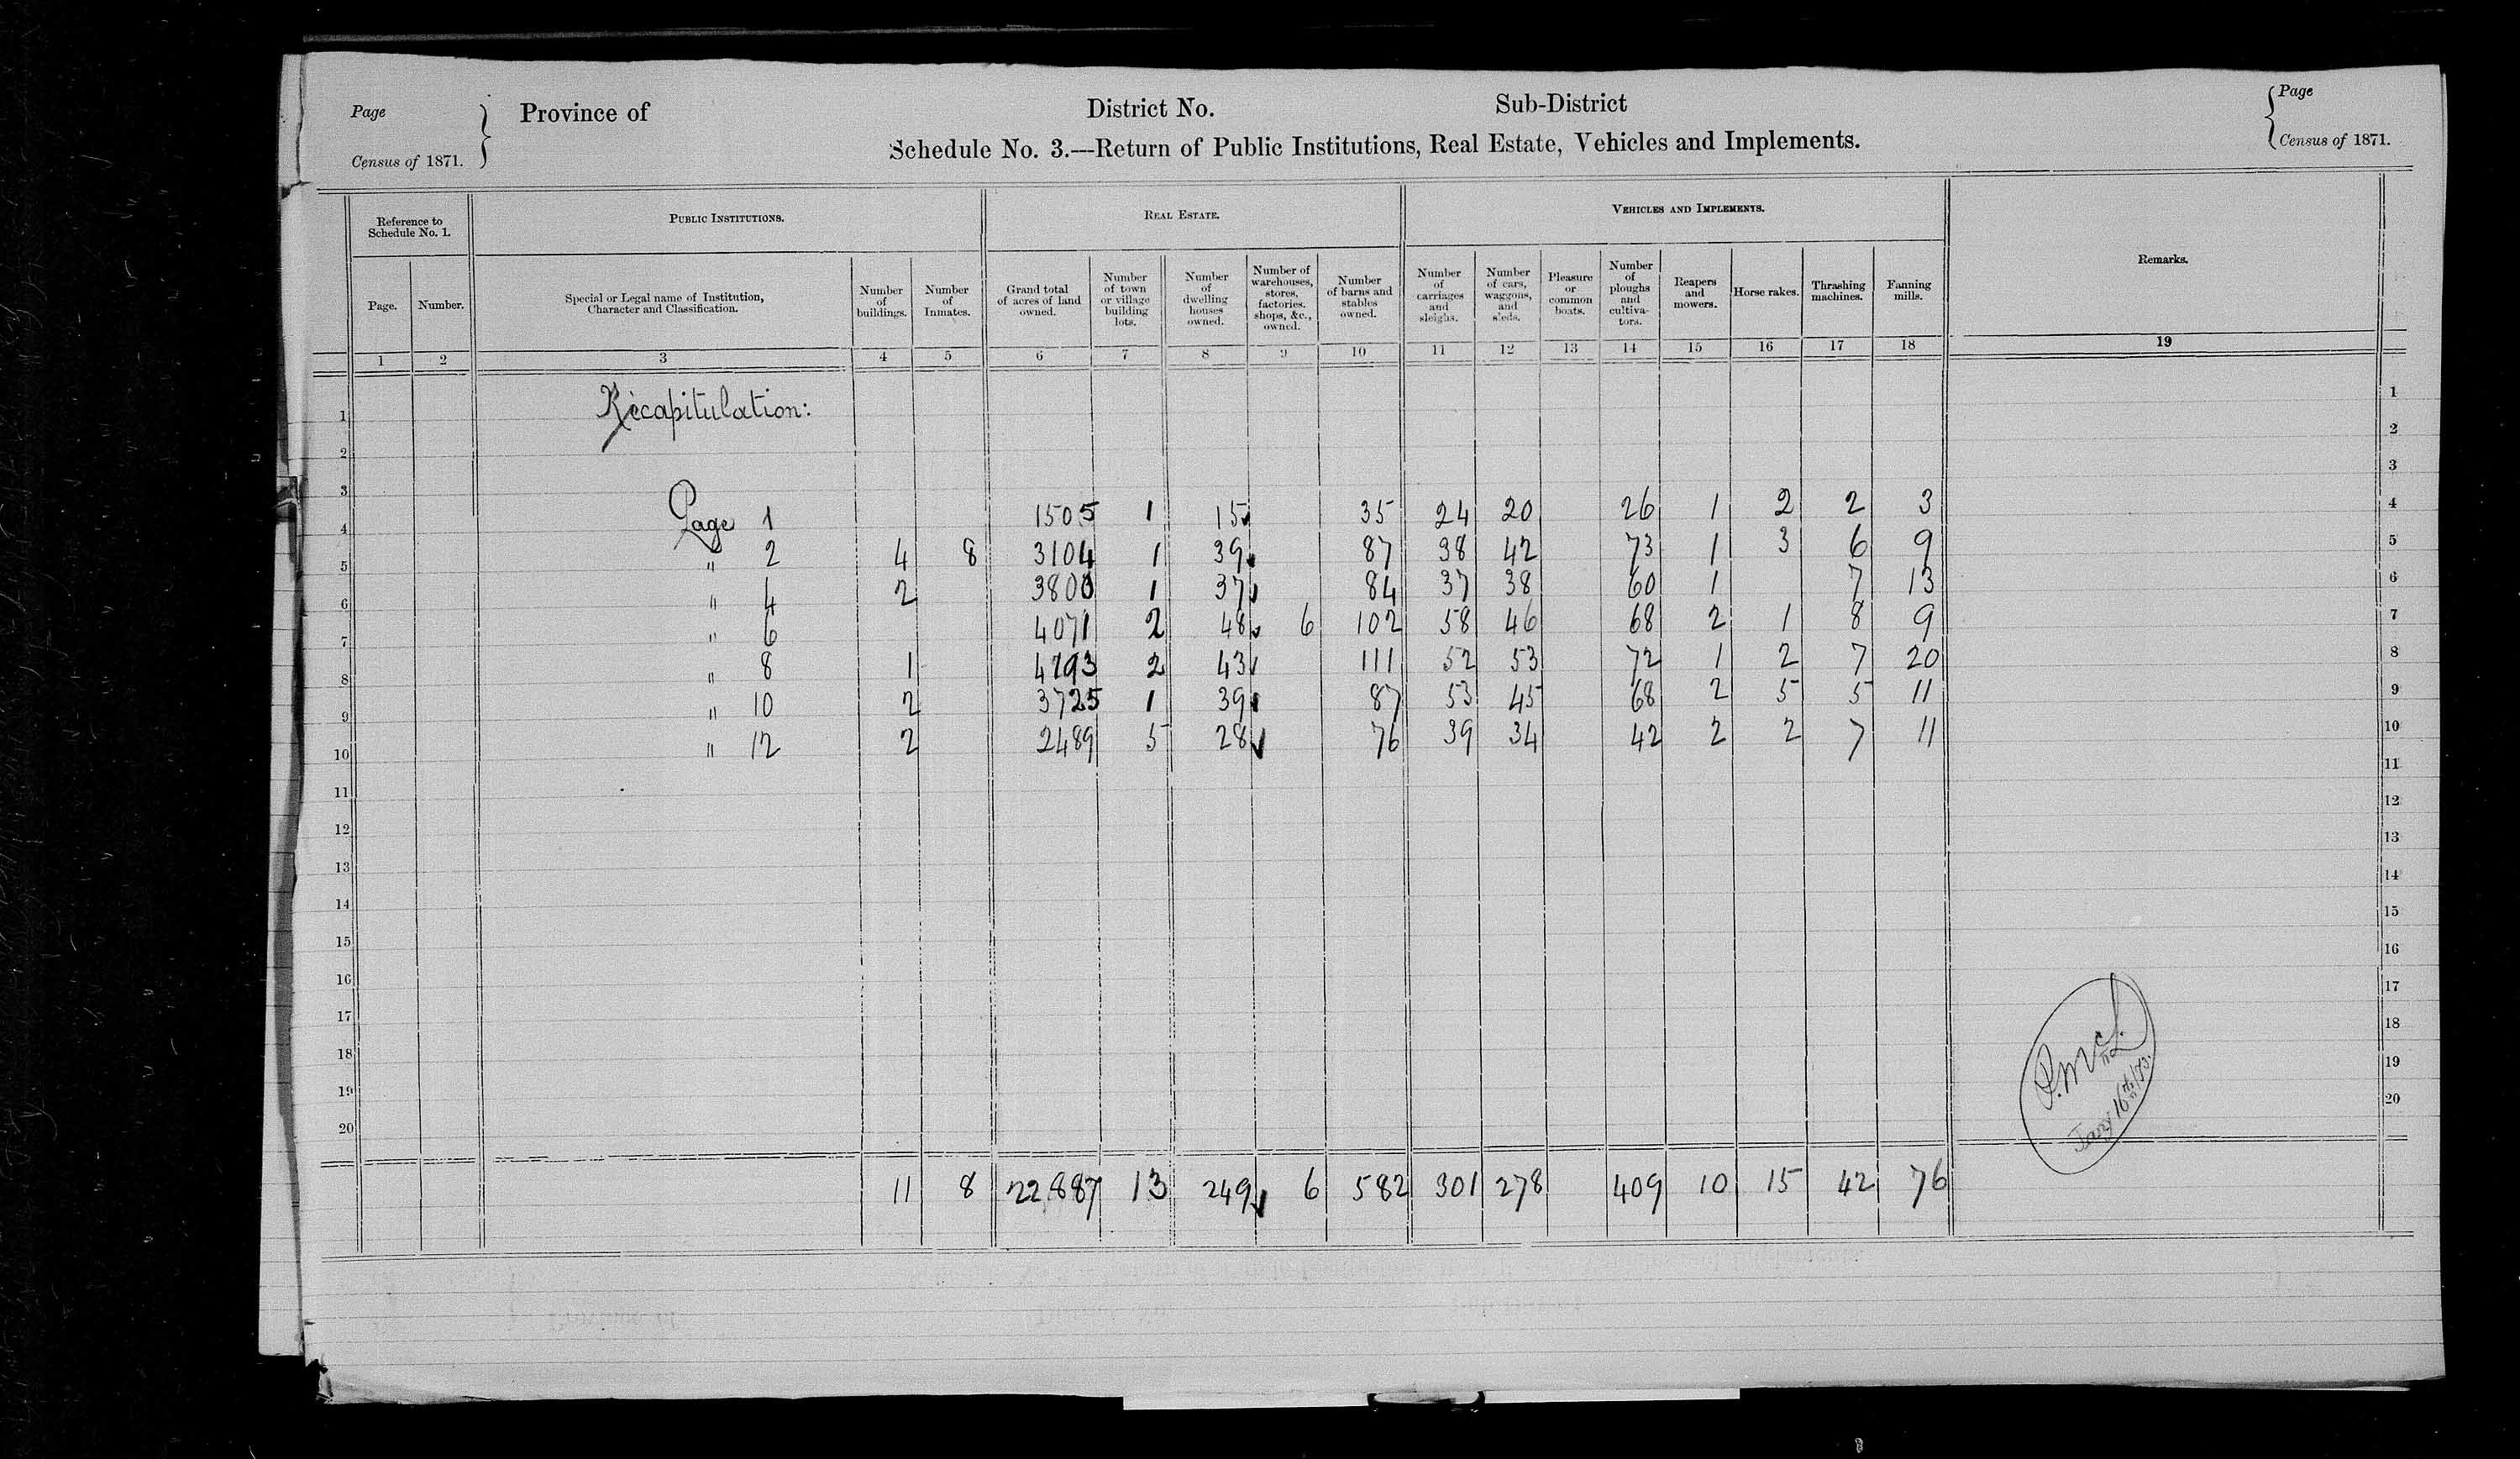 Page
Census of 1871.
Province of
District No.
Sub-District
Page
Census of 1871.
Schedule No. 3.—Return of Public Institutions, Real Estate, Vehicles and Implements.
Reference to
Schedule No. 1.
Public Institutions.
Real Estate.
Vehicles and Implements.
Remarks.
Page.
Number.
Special or Legal name of Institution,
Character and Classification.
Number
of
buildings.
Number
of
Inmates.
Grand total
of acres of land
owned.
Number
of town
or village
building
lots.
Number
of
dwelling
houses
owned.
Number of
warehouses,
stores,
factories,
shops, &c.,
owned.
Number
of barns and
stables
owned.
Number
of
carriages
and
sleighs.
Number
of cars,
waggons,
and
sleds.
Pleasure
or
common
boats.
Number
of
ploughs
and
cultiva-
tors.
Reapers
and
mowers.
Horse rakes.
Thrashing
machines.
Fanning
mills.
1 2 3 4 5 6 7 8 9 10 11 12 13 14 15 16 17 18 19
1 Recapitulation: 1
2 2
3 3
4 Page 1 1505 1 15 35 24 20 26 1 2 2 3 4
5 " 2 4 8 3104 1 39 87 38 42 73 1 3 6 9 5
6 " 4 2 3800 1 37 84 37 38 60 1 7 13 6
7 " 6 4071 2 48 6 102 58 46 68 2 1 8 9 7
8 " 8 1 4193 2 43 111 52 53 72 1 2 7 20 8
9 " 10 2 3725 1 39 87 53 45 68 2 5 5 11 9
10 " 12 2 2489 5 28 76 39 34 42 2 2 7 11 10
11 11
12 12
13 13
14 14
15 15
16 16
17 17
18 18
19 19
20 20
11 8 22,887 13 249 6 582 301 278 409 10 15 42 76
P. McL.
Jany 16th/73.